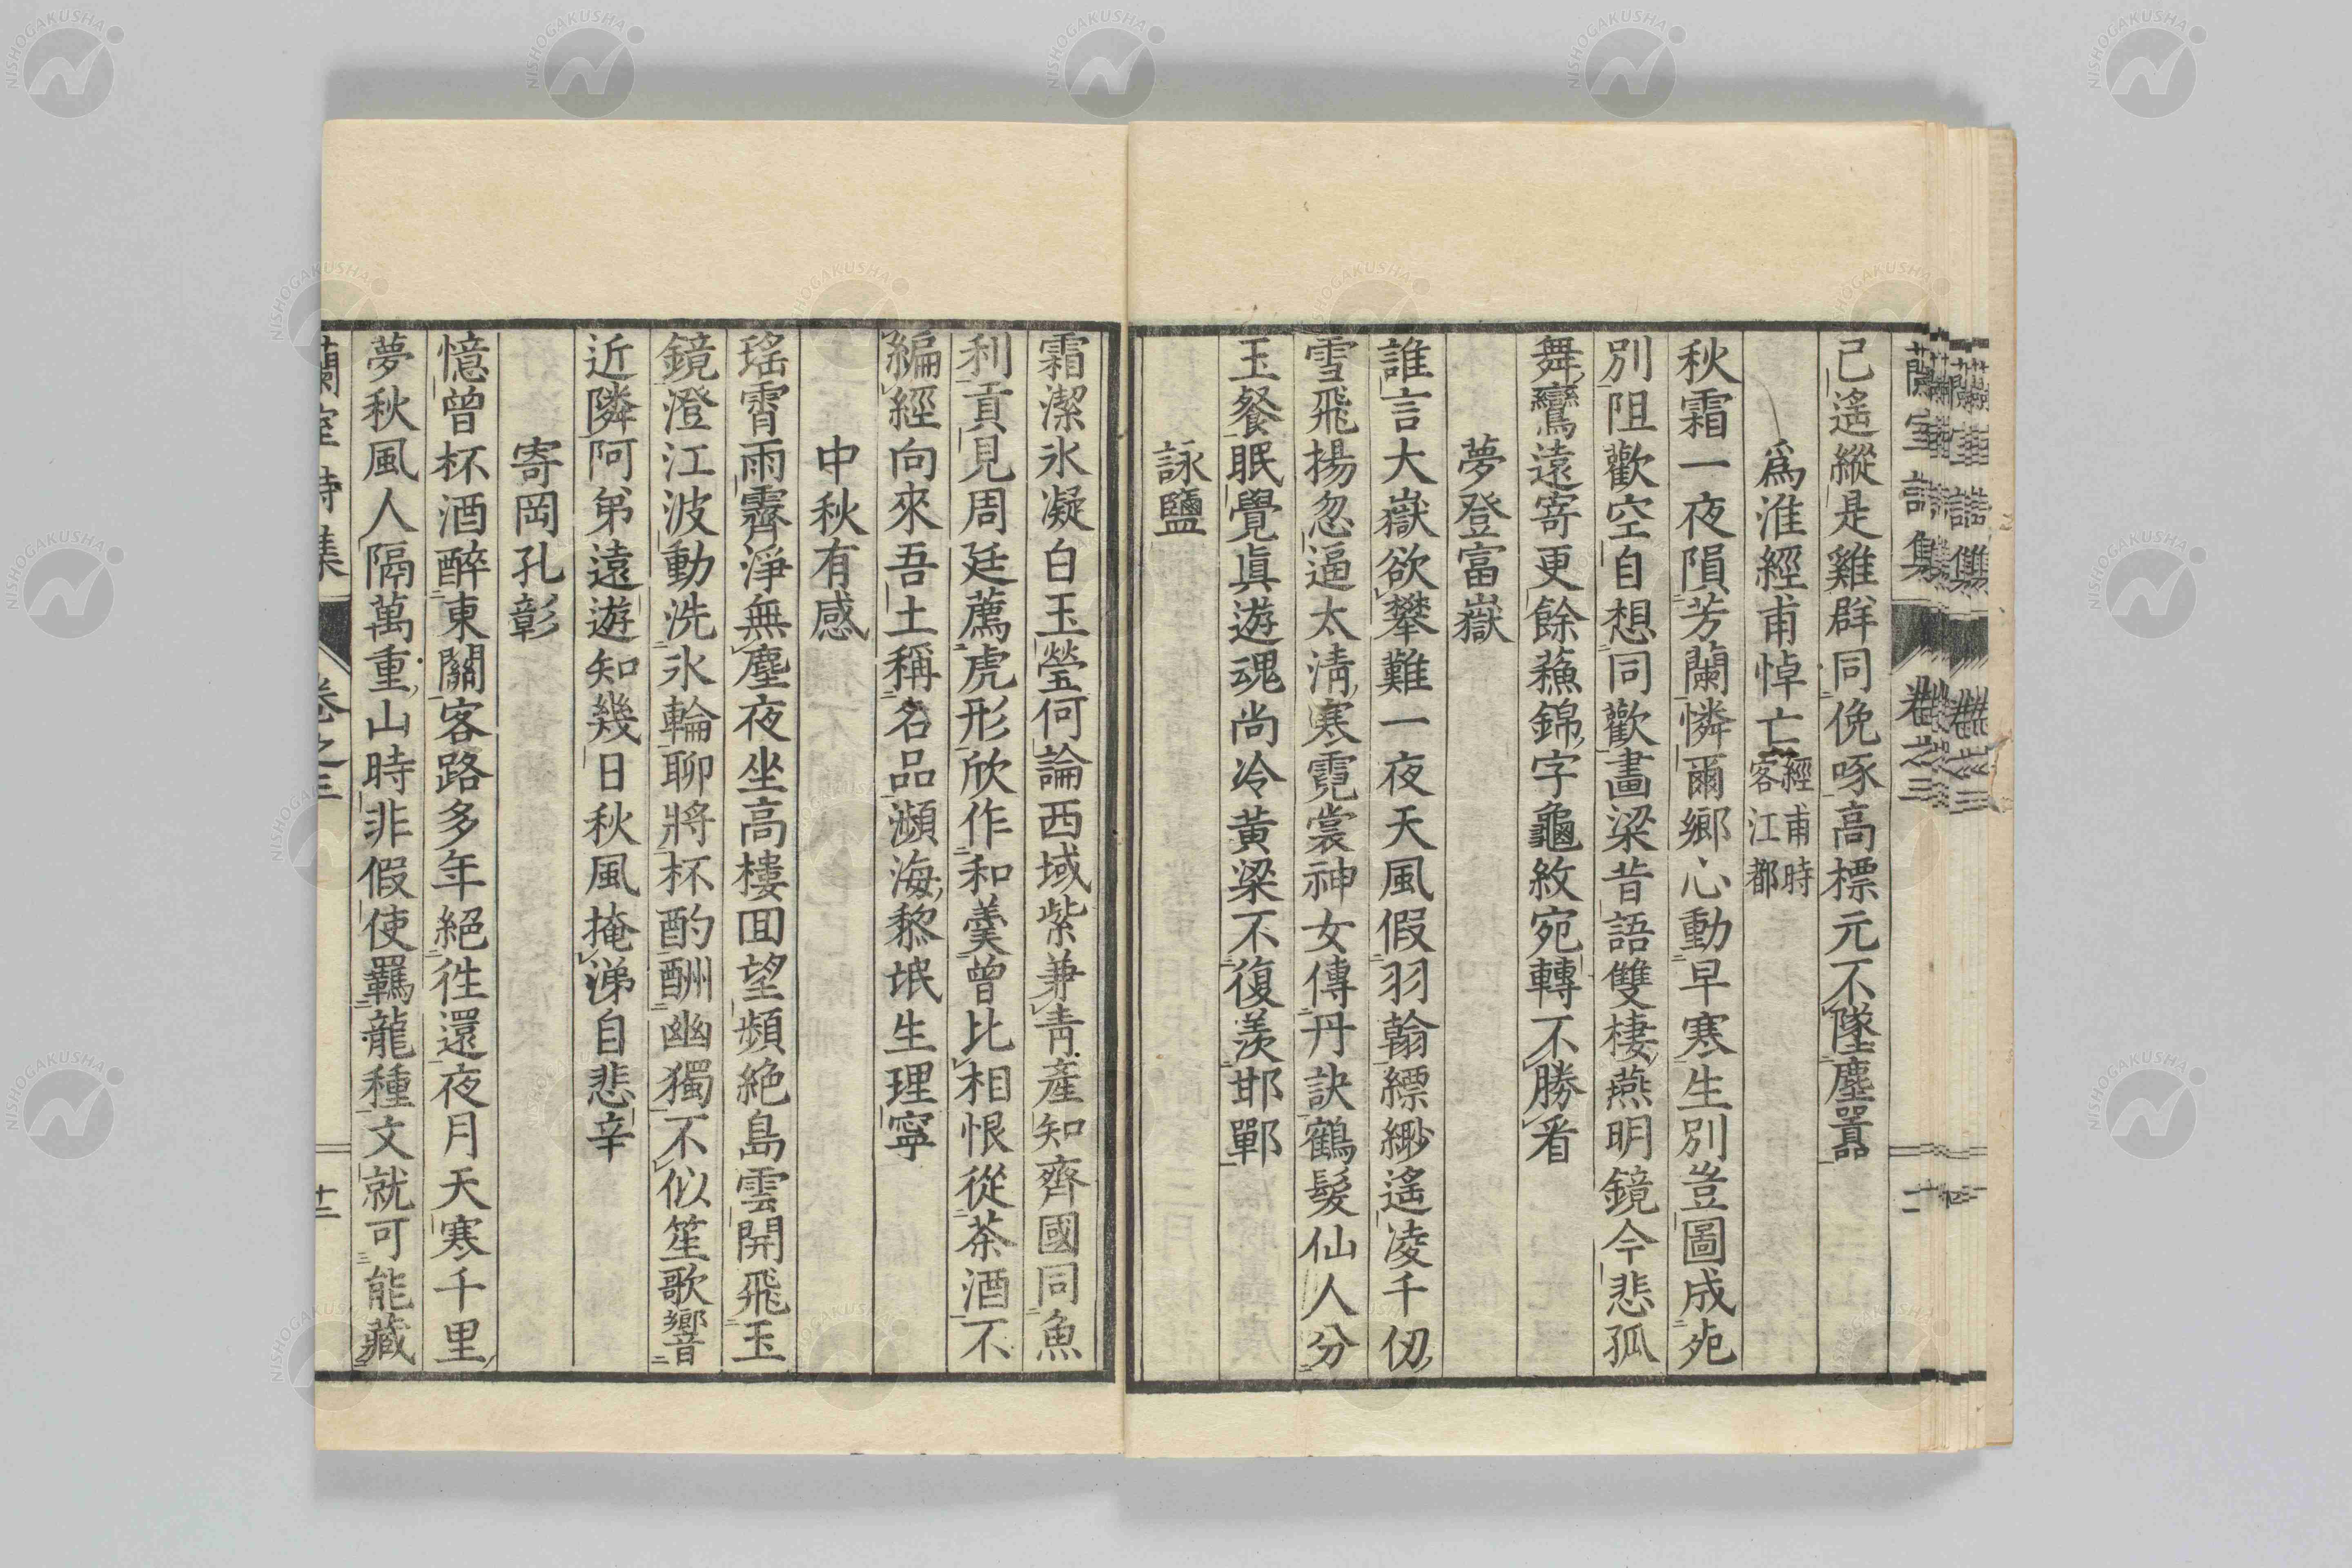 蘭室詩集 卷之三
已遙縱是雞群同俛啄高標元不墜塵囂
爲淮經甫悼亡 經甫時客江都
秋霜一夜隕芳蘭憐爾鄉心動早寒生別豈圖成死
別阻歡空自想同歡畫梁昔語雙棲燕明鏡今悲孤
舞鸞遠寄更餘蘓錦字龜紋宛轉不勝看
夢登富嶽
誰言大嶽欲攀難一夜天風假羽翰縹緲遙凌千仞
雪飛揚忽逼太淸寒霓裳神女傳丹訣鶴髮仙人分
玉餐眠覺眞遊魂尚冷黃梁不復羨邯鄲
詠鹽
霜潔氷凝白玉瑩何論西域紫兼靑產知齊國同魚
利貢見周廷薦虎形欣作和羹曾比相恨從茶酒不
編經向來吾土稱名品瀕海黎氓生理寧
中秋有感
瑤霄雨霽淨無塵夜坐高樓囬望頻絶島雲開飛玉
鏡澄江波動洗氷輪聊將杯酌酬幽獨不似笙歌響
近隣阿弟遠遊知幾日秋風掩涕自悲辛
寄岡孔彰
憶曾杯酒醉東關客路多年絕徃還夜月天寒千里
夢秋風人隔萬重山時非假使羈龍種文就可能藏
蘭室詩集 卷之三 十二